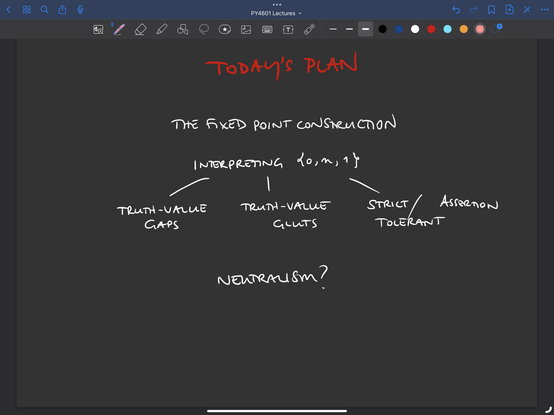 PY4601 Lectures
TODAY'S PLAN
THE FIXED POINT CONSTRUCTION
INTERPRETING {0, n, 1}
TRUTH-VALUE GAPS
TRUTH-VALUE GLUTS
STRICT / TOLERANT ASSERTION
NEUTRALISM?